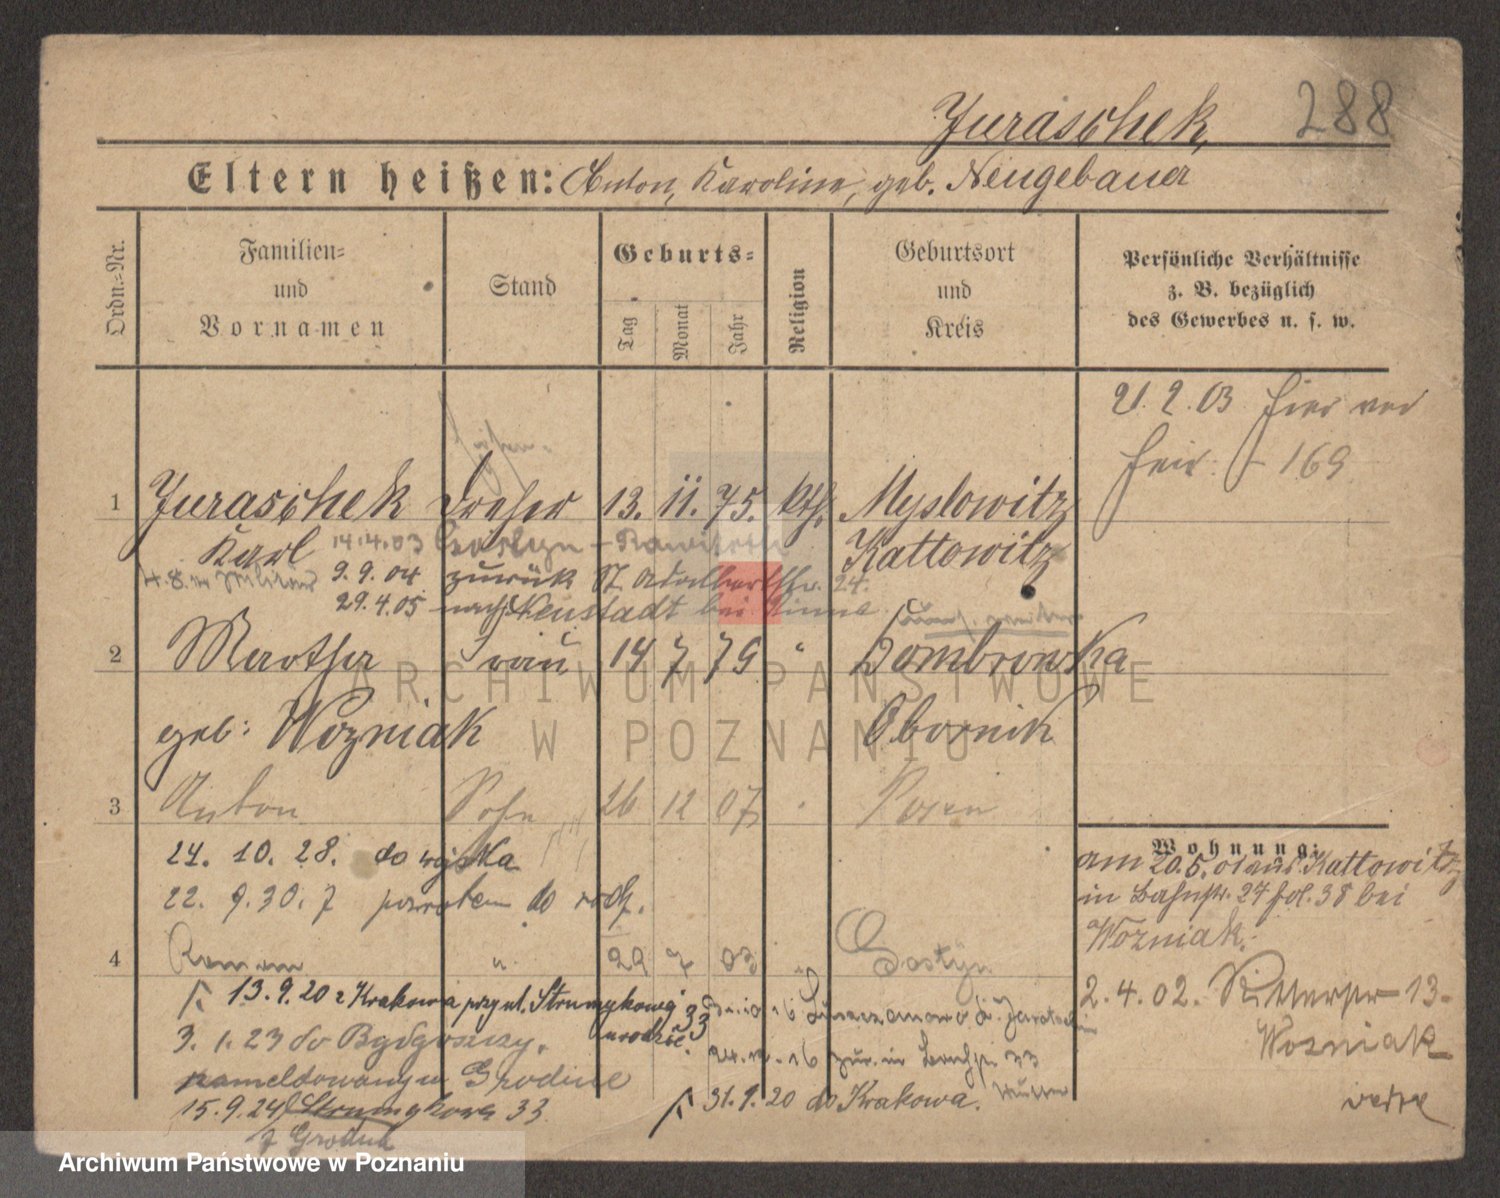 Juraschek, 288
Eltern heißen: Anton, Karoline, geb. Neugebauer
Ordn.=Nr.
Familien=
und
Vornamen
Stand
Geburts=
Tag
Monat
Jahr
Religion
Geburtsort
und
Kreis
Persönliche Verhältnisse
z. B. bezüglich
des Gewerbes u. s. w.
21. 2. 03
169
1 Juraschek Dreher 13. 11. 75. kth. Myslowitz
Karl 14.4.03 Kattowitz
9. 9. 04 zurück St. Adalbertstr. 24.
29. 4. 05 nach Neustadt bei Pinne
2 Martha Frau 14 7 79 " Dombrowka
geb: Wozniak Obornik
3 Anton Sohn 26 12 07 Posen
24. 10. 28. do wojska
22. 9. 30. z powrotem do rodz.
4 Roman " 29 7 03 " Gostyn
13. 9. 20 z Krakowa przy ul. Strumykowej 33
3. 1. 23 do Bydgoszczy.
24. 12. 16 zur. in 33
zameldowany w Grodnie
31. 9. 20 do Krakowa.
15. 9. 24 Strumykowa 33
z Grodna
Wohnung:
am 20.5.01 aus Kattowitz
in Bahnstr. 27 fol. 38 bei
Wozniak.
2. 4. 02. Ritterstr 13.
Wozniak
ARCHIWUM PAŃSTWOWE
W POZNANIU
Archiwum Państwowe w Poznaniu